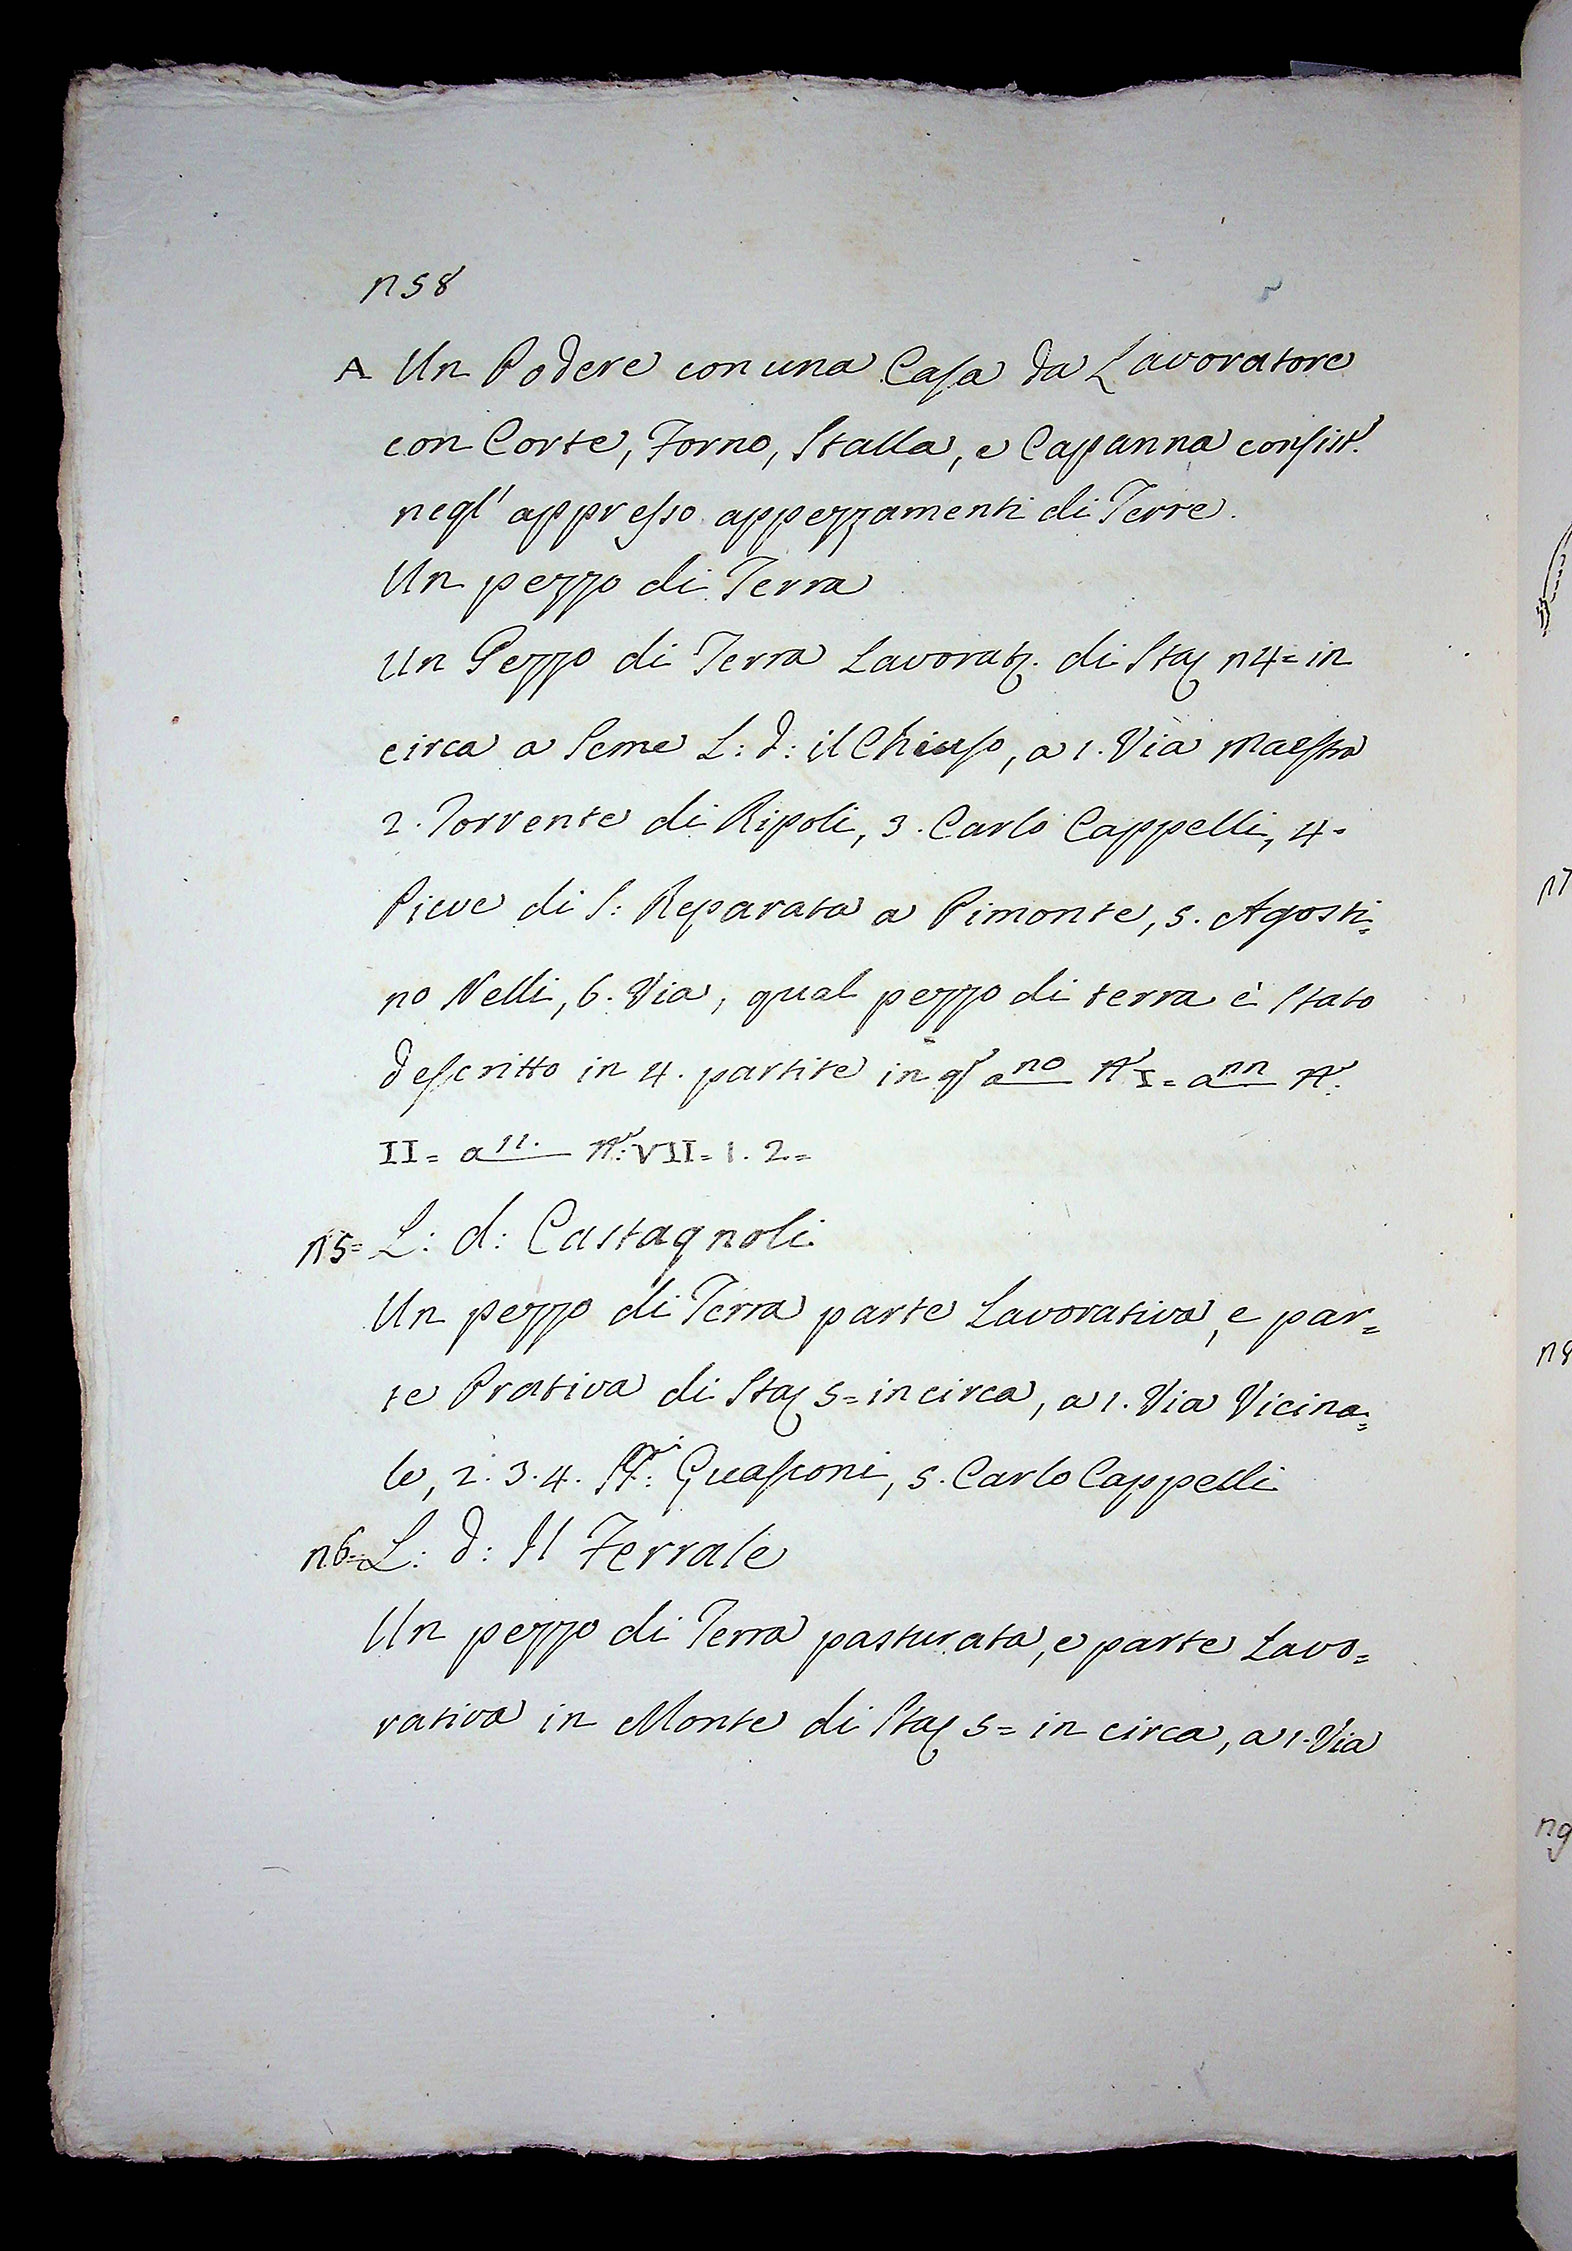 n 58
A Un Podere con una Casa da Lavoratore
con Corte, Forno, Stalla, e Capanna consist.
negl' appresso appezzamenti di Terre.
Un pezzo di Terra
Un Pezzo di Terra Lavorat. di Sta n 4= in
circa a Seme L: d: il Chiuso, a 1. Via Maestra
2. Torrente di Ripoli, 3. Carlo Cappelli, 4.
Pieve di S: Reparata a Pimonte, 5. Agosti=
no Nelli, 6. Via, qual pezzo di terra è Stato
descritto in 4. partite in I=
II= VII= 1. 2=
n 5= L: d: Castagnoli
Un pezzo di Terra parte Lavorativa, e par=
te Prativa di Sta 5= in circa, a 1. Via Vicina=
le, 2. 3. 4. Guasconi, 5. Carlo Cappelli
n 6= L: d: Il Ferrale
Un pezzo di Terra pasturata, e parte Lavo=
rativa in Monte di Sta 5= in circa, a 1. Via
n 7
n 8
n 9